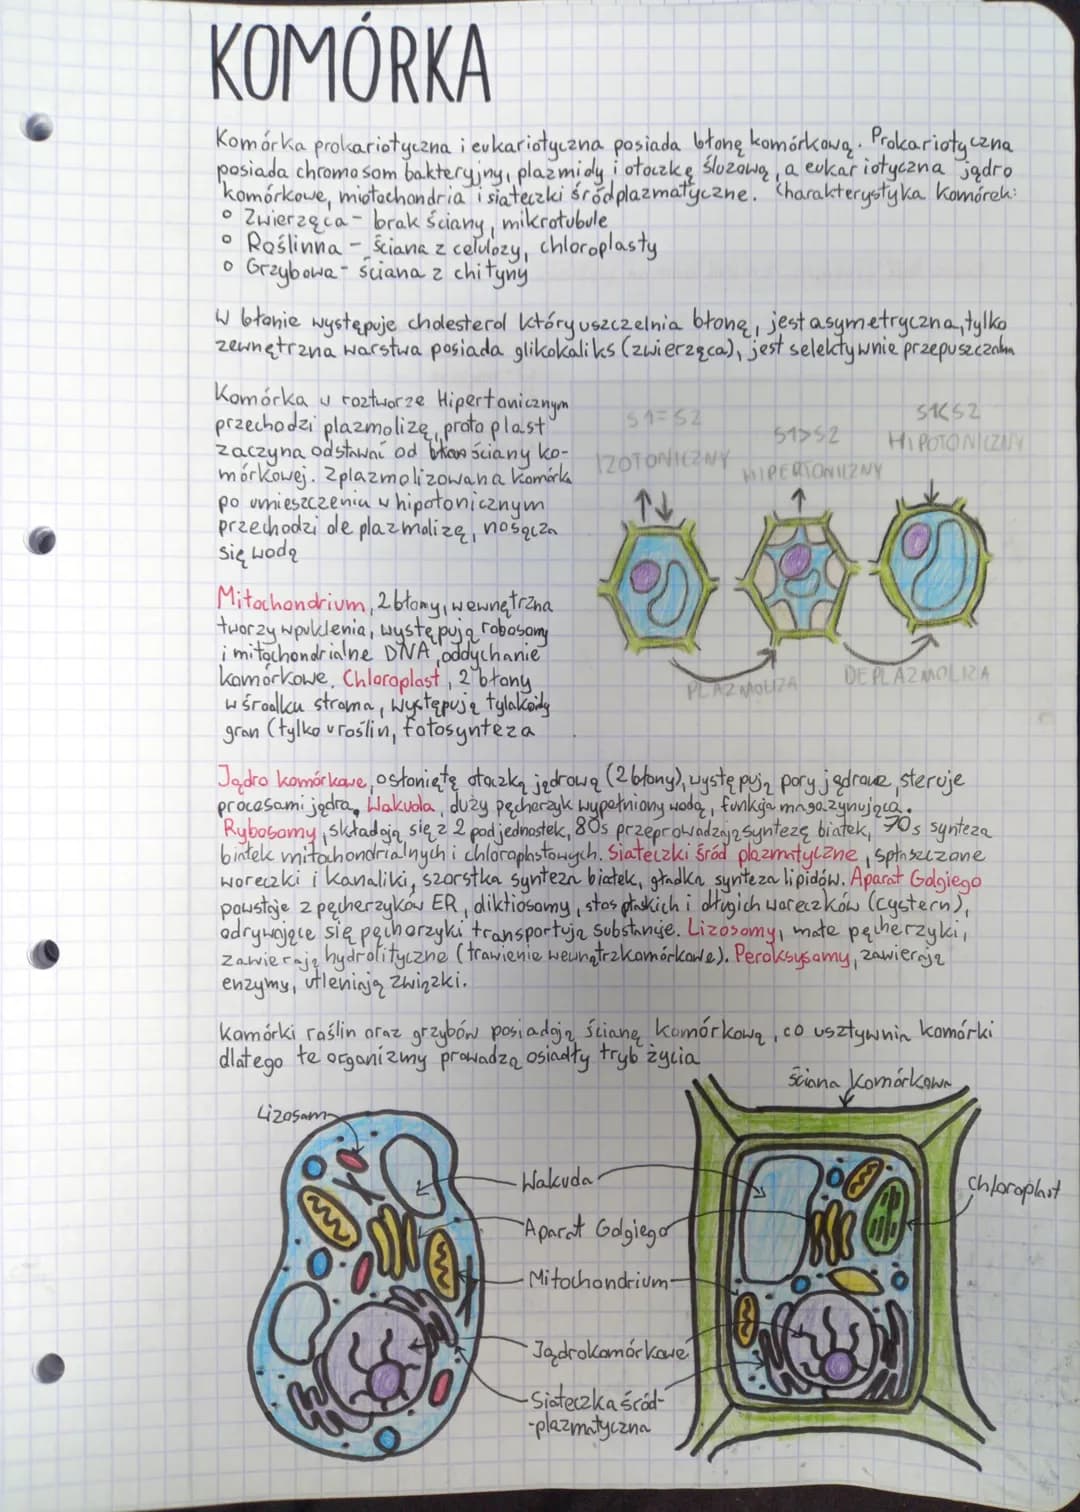 KOMÓRKA
Komórka prokariotyczna i eukariotyczna posiada błonę komórkową. Prokariotyczna
posiada chromosom bakteryjny, plazmidy i otoczkę śluzową, a eukariotyczna jądro
komórkowe, miotochondria i siateczki śródplazmatyczne. Charakterystyka komórek:
o Zwierzęca - brak ściany, mikrotubule
o Roślinna - ściana z celulozy, chloroplasty
o Grzybowa - ściana z chityny
W błonie występuje cholesterol który uszczelnia błonę, jest asymetryczna, tylko
zewnętrzna warstwa posiada glikokaliks (zwierzęca), jest selektywnie przepuszczalna
Komórka w roztworze Hipertonicznym
przechodzi plazmolizę, protoplast
zaczyna odstawać od ściany ko-
mórkowej. Zplazmolizowana komórka
po umieszczeniu w hipotonicznym
przechodzi deplazmolizę, nasącza
się wodą
S1=S2
IZOTONICZNY
S1>S2
HIPERTONIIZNY
S1<S2
HIPOTONICZNY
PLAZMOLIZA
DEPLAZMOLIZA
Mitochondrium, 2 błony, wewnętrzna
tworzy wpuklenia, występują robosomy
i mitochondrialne DNA, oddychanie
komórkowe. Chloroplast, 2 błony
w środku stroma, występują tylakoidy
gran (tylko u roślin, fotosynteza
Jądro komórkowe, osłonięte otoczką jądrową (2 błony), występują pory jądrowe, steruje
procesami jądra. Wakuola, duży pęcherzyk wypełniony wodą, funkcja magazynująca.
Rybosomy, składają się z 2 podjednostek, 80s przeprowadzają syntezę białek, 70s synteza
białek mitochondrialnych i chloroplastowych. Siateczki śród plazmatyczne, spłaszczone
woreczki i kanaliki, szorstka synteza białek, gładka synteza lipidów. Aparat Golgiego
powstaje z pęcherzyków ER, diktiosomy, stos płaskich i długich woreczków (cystern),
odrywające się pęcherzyki transportują substancje. Lizosomy, małe pęcherzyki,
zawierają hydrolityczne (trawienie wewnątrzkomórkowe). Peroksysomy, zawierają
enzymy, utleniają związki.
Komórki roślin oraz grzybów posiadają ścianę komórkową, co usztywnia komórki
dlatego te organizmy prowadzą osiadły tryb życia
ściana komórkowa
Lizosom
Wakuola
Chloroplast
Aparat Golgiego
Mitochondrium
Jądro komórkowe
Siateczka śród-
-plazmatyczna